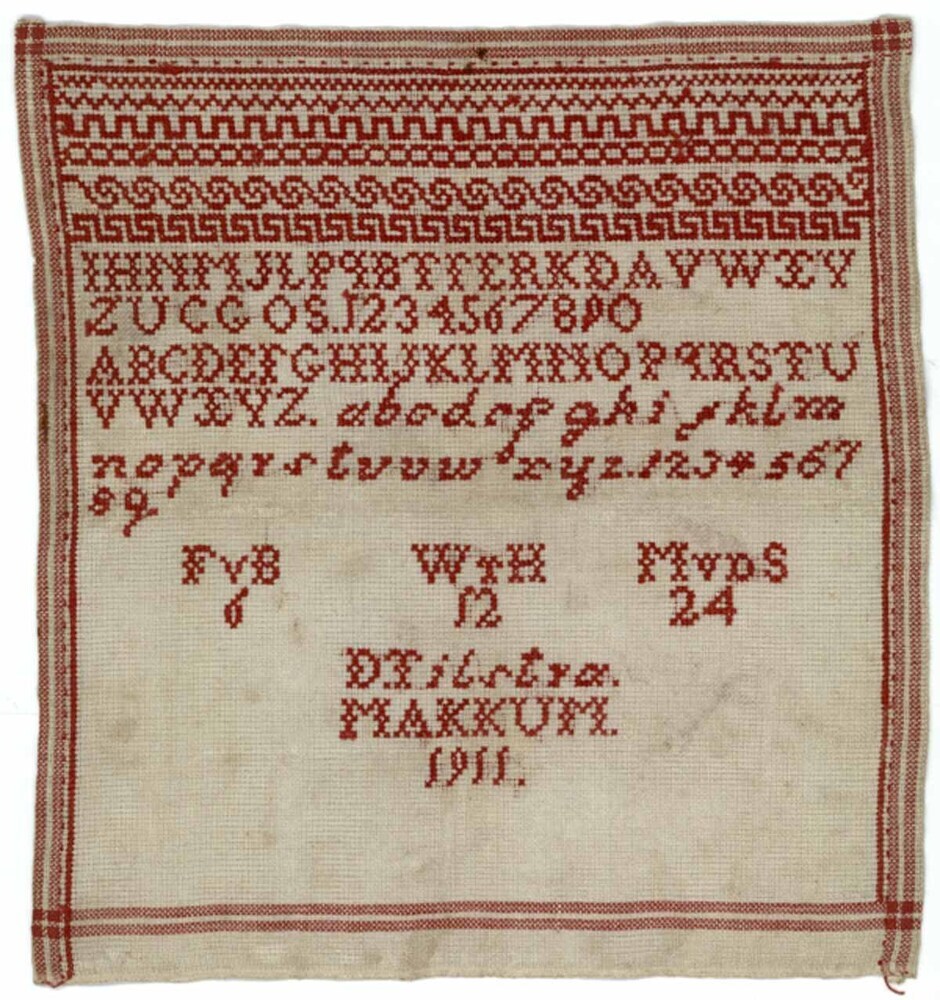 IHNMJLPQRBTFERKDAVWXY
ZUCGOS.1234567890
ABCDEFGHIJKLMNOPQRSTU
VWXYZ. abcdef ghijklm
nopqrstuvw xyz.1234567
89
FvB WTH MvDS
6 12 24
DTjibstra.
MAKKUM.
1911.